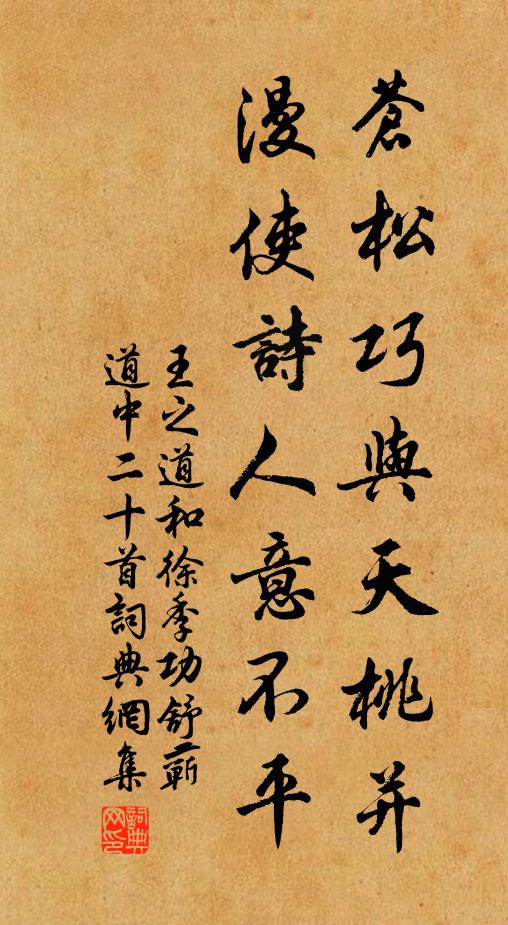 蒼松巧與天桃并
漫使詩人意不平
王之道和徐季功舒蘄
道中二十首詞典網集
詞典网印